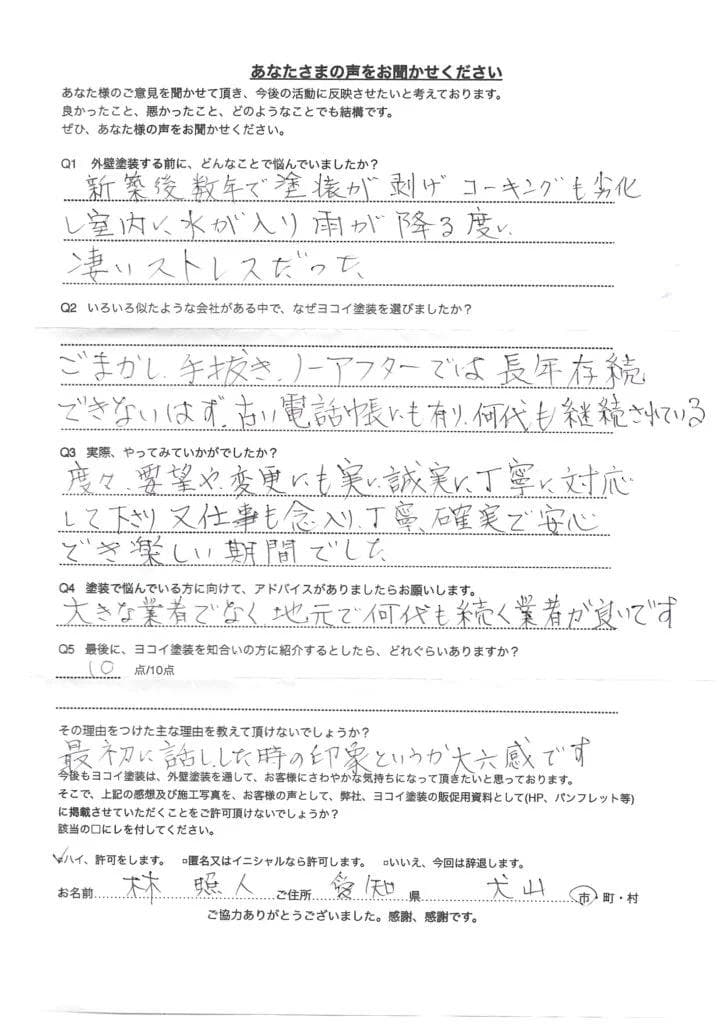 あなたさまの声をお聞かせください
あなた様のご意見を聞かせて頂き、今後の活動に反映させたいと考えております。
良かったこと、悪かったこと、どのようなことでも結構です。
ぜひ、あなた様の声をお聞かせください。
Q1 外壁塗装する前に、どんなことで悩んでいましたか？
新築後数年で塗装が剥げコーキングも劣化
し室内に水が入り雨が降る度に
凄いストレスだった
Q2 いろいろ似たような会社がある中で、なぜヨコイ塗装を選びましたか？
ごまかし、手抜き、ノーアフターでは長年存続
できないはず、古い電話帳にも有り、何代も継続されている
Q3 実際、やってみていかがでしたか？
度々、要望や、変更にも実に誠実に丁寧に対応
して下さり又仕事も念入り、丁寧、確実で安心
でき楽しい期間でした
Q4 塗装で悩んでいる方に向けて、アドバイスがありましたらお願いします。
大きな業者でなく地元で何代も続く業者が良いです
Q5 最後に、ヨコイ塗装を知合いの方に紹介するとしたら、どれぐらいありますか？
10 点/10点
その理由をつけた主な理由を教えて頂けないでしょうか？
最初に話しした時の印象というか大六感です
今後もヨコイ塗装は、外壁塗装を通して、お客様にさわやかな気持ちになって頂きたいと思っております。
そこで、上記の感想及び施工写真を、お客様の声として、弊社、ヨコイ塗装の販促用資料として(HP、パンフレット等)
に掲載させていただくことをご許可頂けないでしょうか？
該当の□にレを付してください。
☑ハイ、許可をします。 □匿名又はイニシャルなら許可します。 □いいえ、今回は辞退します。
お名前 林 照人 ご住所 愛知 県 犬山 市・町・村
ご協力ありがとうございました。感謝、感謝です。